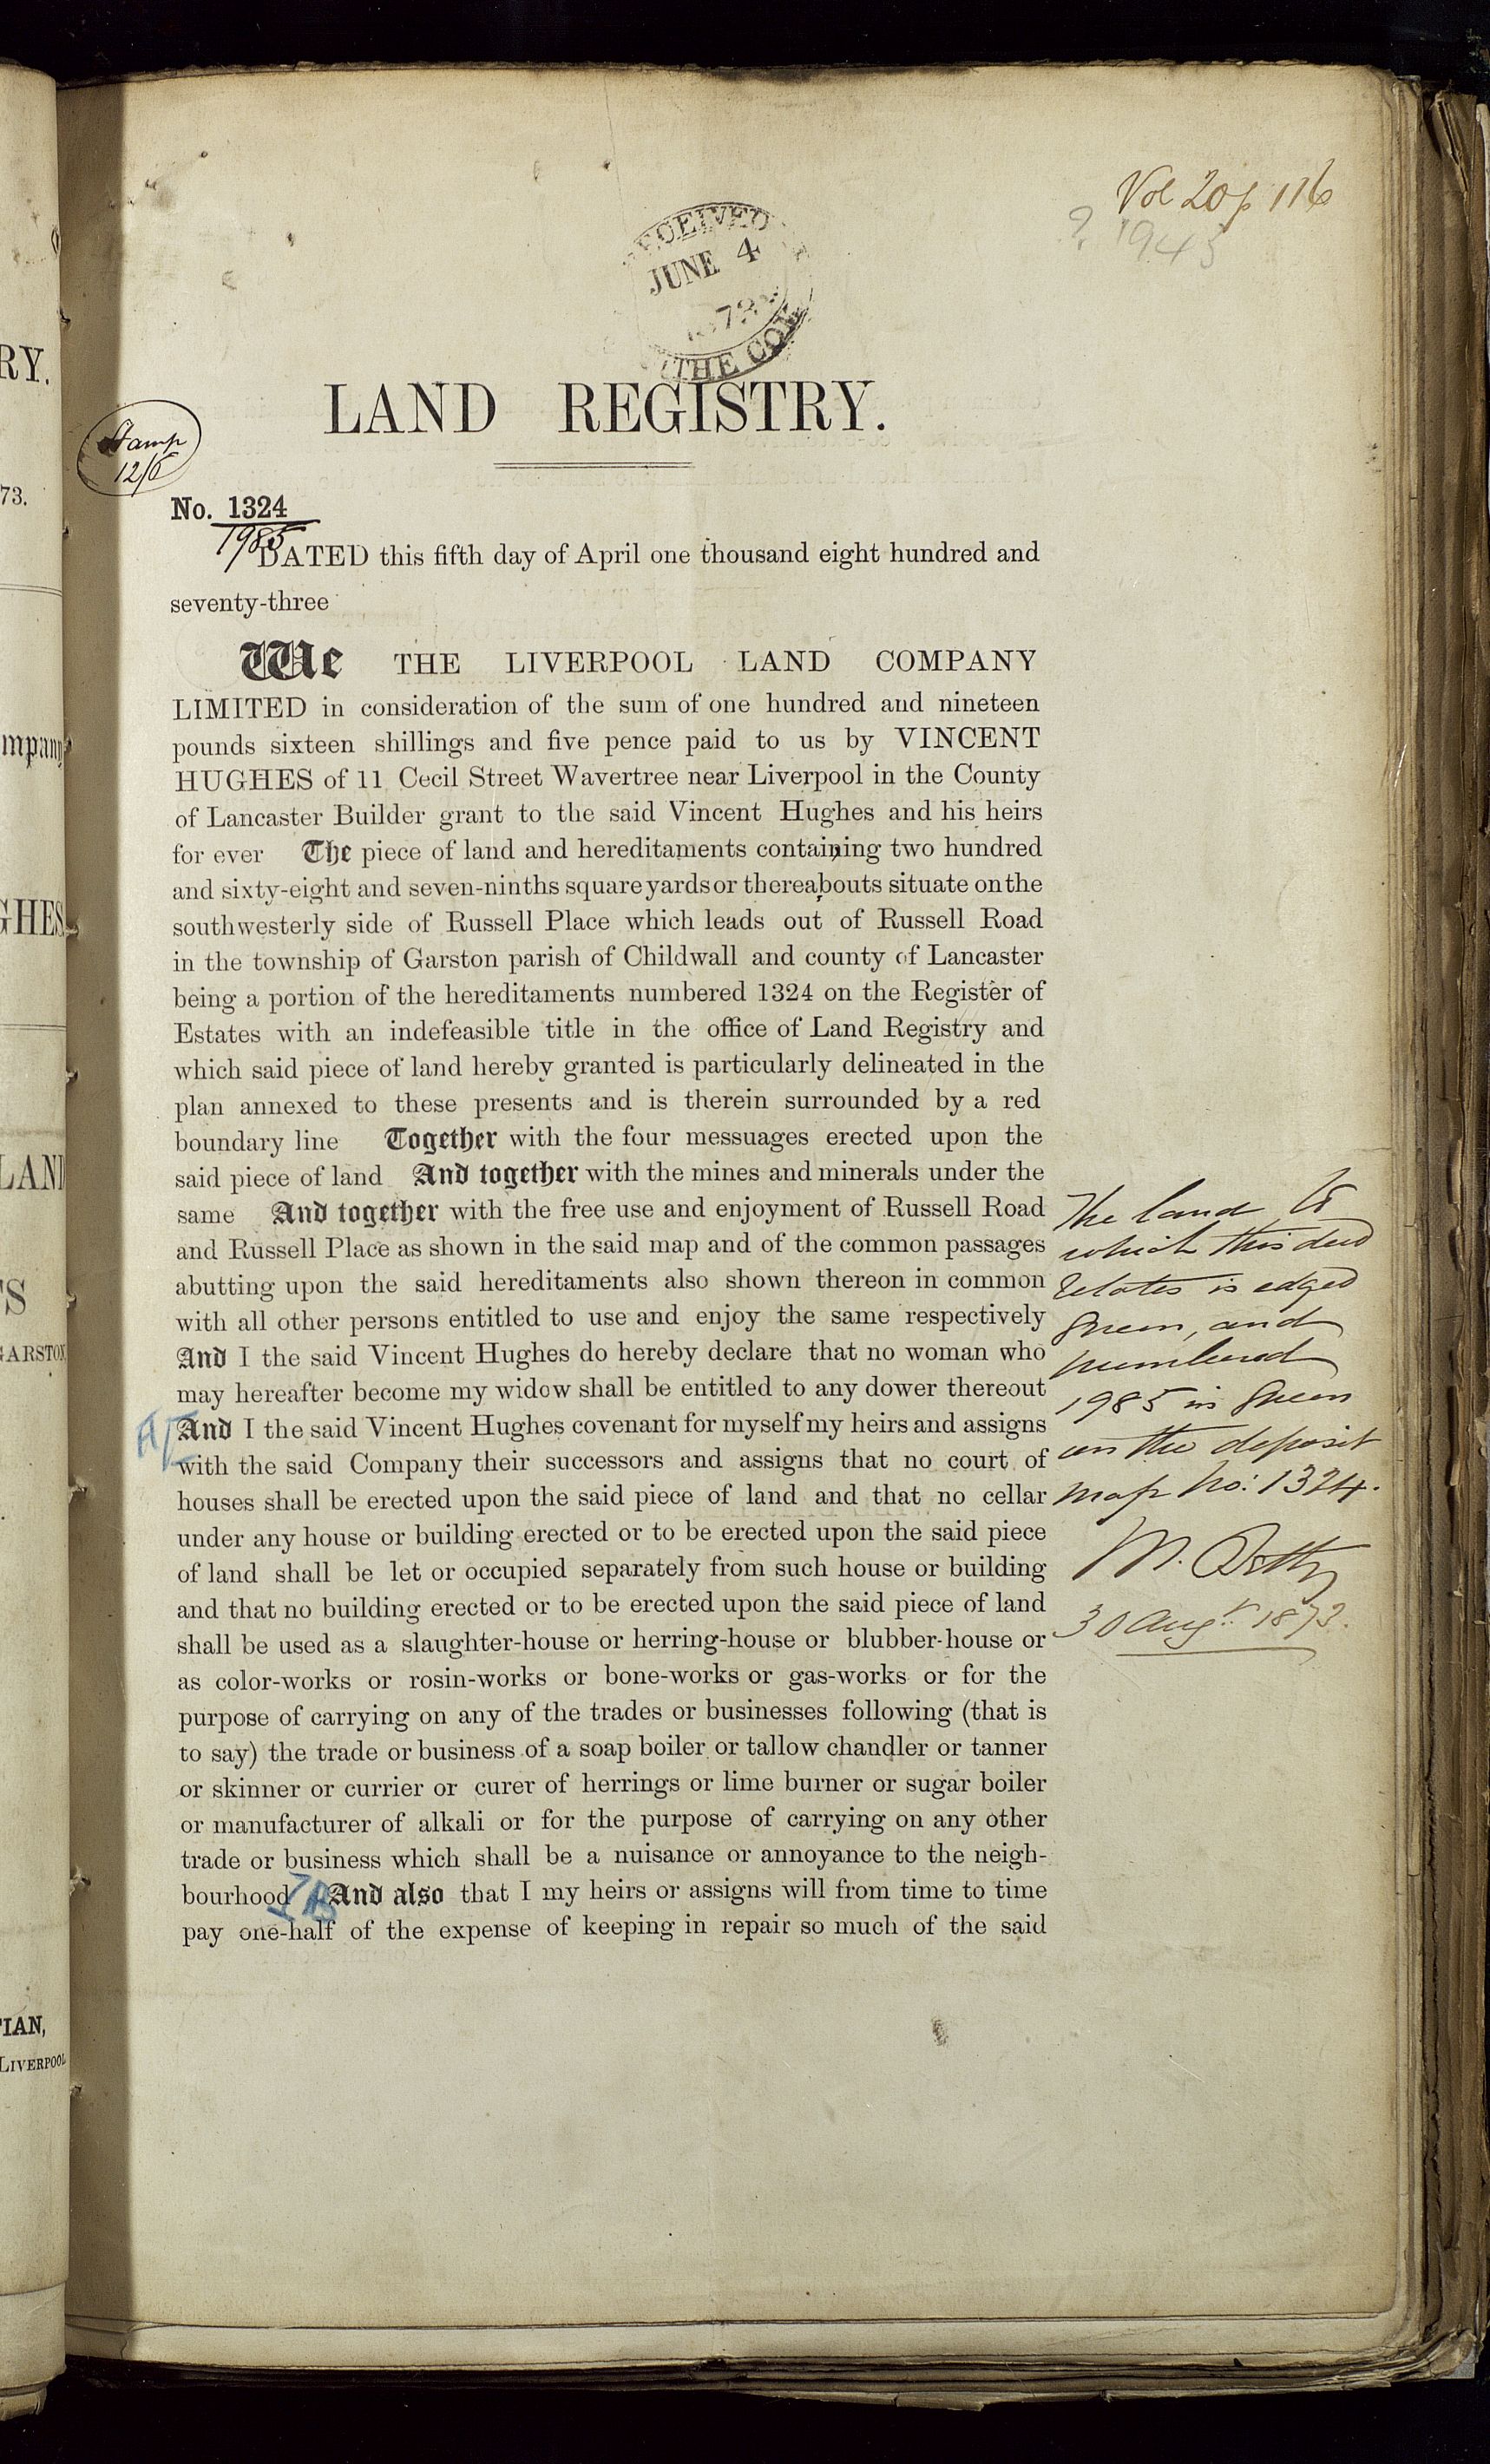 Vol 20 p 116
? 1945
RECEIVED
JUNE 4
THE
LAND REGISTRY.
Stamp
12/6
No. 1324
1985
DATED this fifth day of April one thousand eight hundred and
seventy-three
We THE LIVERPOOL LAND COMPANY
LIMITED in consideration of the sum of one hundred and nineteen
pounds sixteen shillings and five pence paid to us by VINCENT
HUGHES of 11 Cecil Street Wavertree near Liverpool in the County
of Lancaster Builder grant to the said Vincent Hughes and his heirs
for ever The piece of land and hereditaments containing two hundred
and sixty-eight and seven-ninths square yards or thereabouts situate on the
southwesterly side of Russell Place which leads out of Russell Road
in the township of Garston parish of Childwall and county of Lancaster
being a portion of the hereditaments numbered 1324 on the Register of
Estates with an indefeasible title in the office of Land Registry and
which said piece of land hereby granted is particularly delineated in the
plan annexed to these presents and is therein surrounded by a red
boundary line Together with the four messuages erected upon the
said piece of land And together with the mines and minerals under the
same And together with the free use and enjoyment of Russell Road
and Russell Place as shown in the said map and of the common passages
abutting upon the said hereditaments also shown thereon in common
with all other persons entitled to use and enjoy the same respectively
And I the said Vincent Hughes do hereby declare that no woman who
may hereafter become my widow shall be entitled to any dower thereout
And I the said Vincent Hughes covenant for myself my heirs and assigns
with the said Company their successors and assigns that no court of
houses shall be erected upon the said piece of land and that no cellar
under any house or building erected or to be erected upon the said piece
of land shall be let or occupied separately from such house or building
and that no building erected or to be erected upon the said piece of land
shall be used as a slaughter-house or herring-house or blubber-house or
as color-works or rosin-works or bone-works or gas-works or for the
purpose of carrying on any of the trades or businesses following (that is
to say) the trade or business of a soap boiler or tallow chandler or tanner
or skinner or currier or curer of herrings or lime burner or sugar boiler
or manufacturer of alkali or for the purpose of carrying on any other
trade or business which shall be a nuisance or annoyance to the neigh-
bourhood And also that I my heirs or assigns will from time to time
pay one-half of the expense of keeping in repair so much of the said
The land to
which this deed
relates is edged
green, and
numbered
1985 in green
on the deposit
map No: 1324.
30 Augt. 1873.
RY.
73.
mpany
GHES
LAND
TS
GARSTON
TIAN,
LIVERPOOL